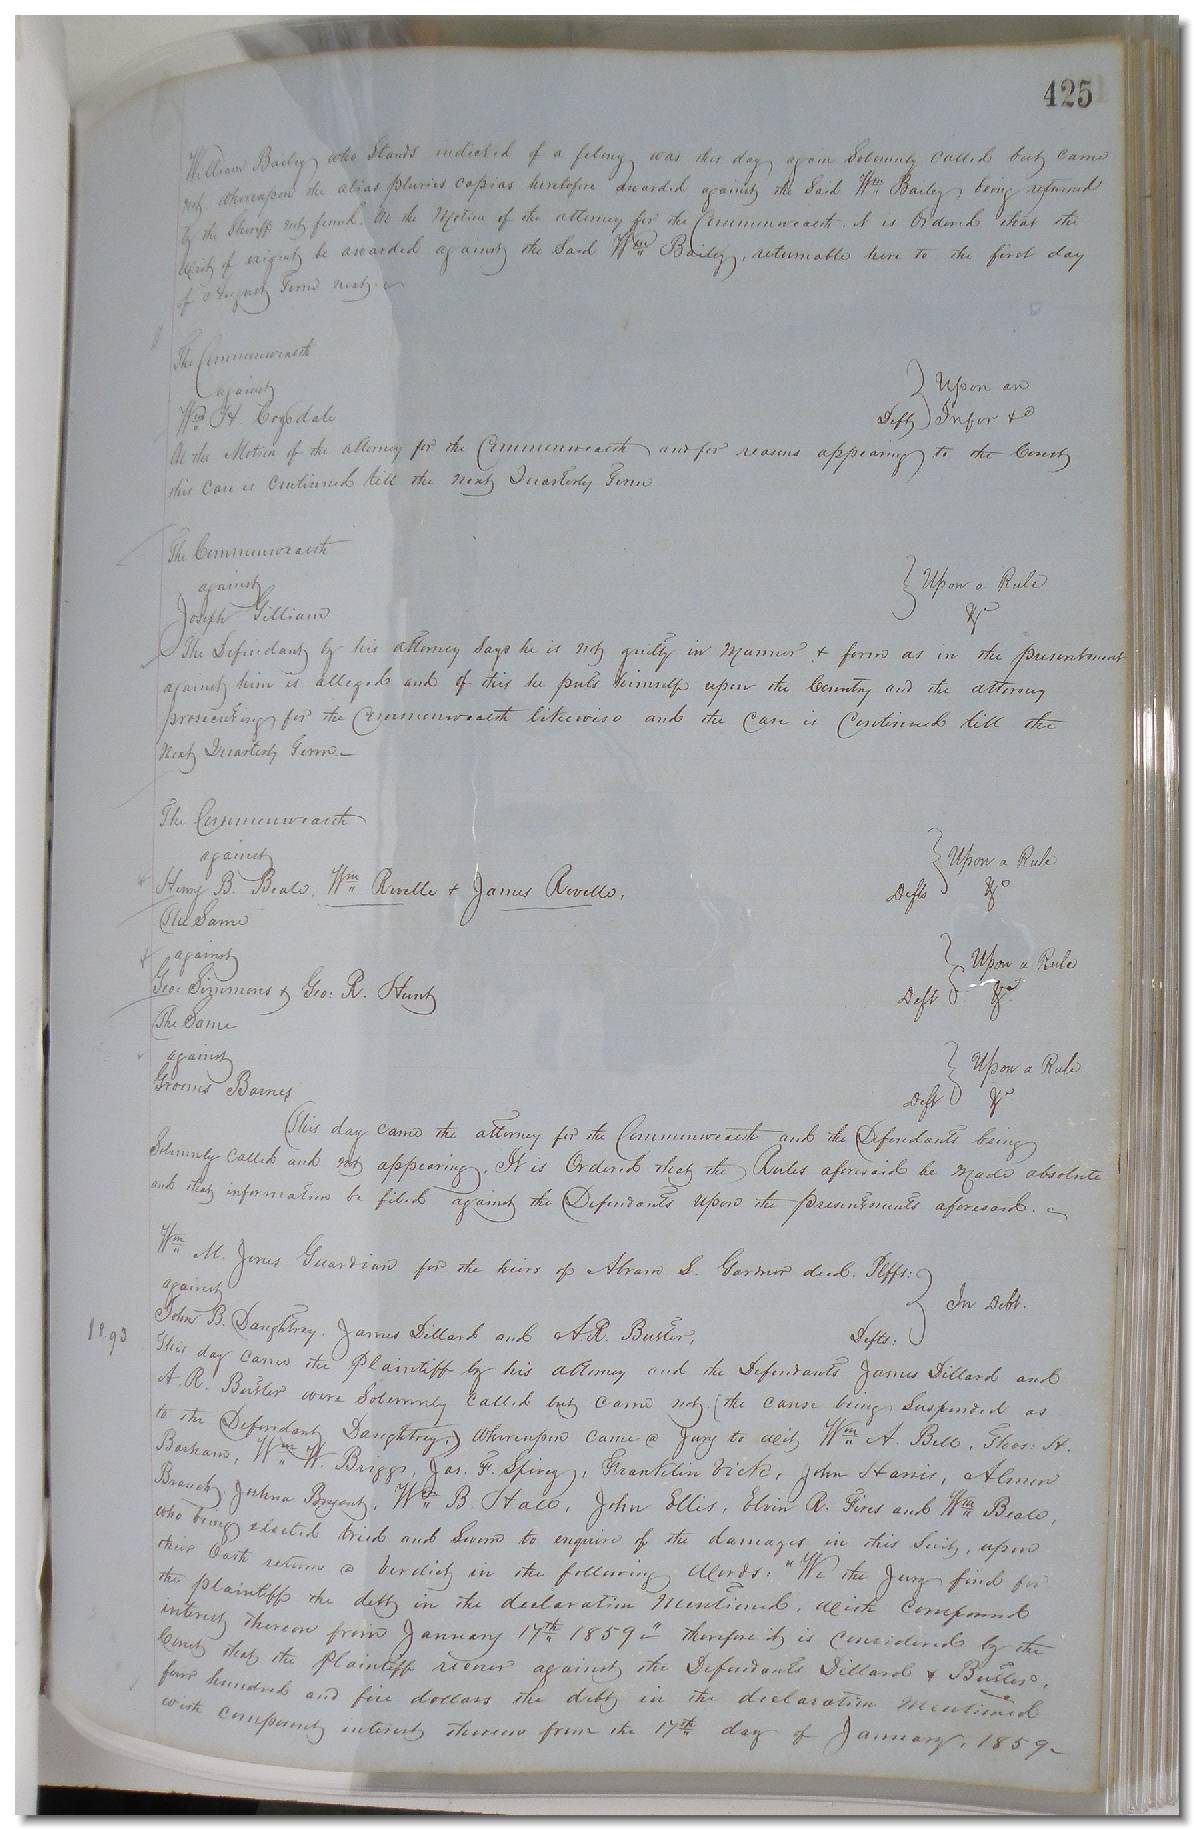 425
William Bailey who Stands indicted of a felony was this day again Solemnly Called but came
not. Whereupon the alias pluries capias heretofore awarded against the Said Wm Bailey being returned
by the Sheriff not found. On the Motion of the attorney for the Commonwealth it is Ordered that the
Writ of exigent be awarded against the Said Wm Bailey, returnable here to the first day
of August Term next.
The Commonwealth
against } Upon an
Wm H. Cogsdale Deft } Infor &c
On the Motion of the attorney for the Commonwealth and for reasons appearing to the Court
this case is Continued till the next Quarterly Term
The Commonwealth
against } Upon a Rule
Joseph Gilliam &c
The Defendant by his attorney Says he is not guilty in Manner & form as in the presentment
against him is alleged and of this he puts himself upon the Country and the attorney
prosecuting for the Commonwealth likewise and the Case is Continued till the
next Quarterly Term
The Commonwealth
against } Upon a Rule
Henry B. Beale, Wm Rivelle & James Rivelle, Defts &c
The Same
against } Upon a Rule
Geo: Simmons & Geo: R. Hunt Deft &c
The Same
against } Upon a Rule
Grooms Barnes Deft &c
This day came the attorney for the Commonwealth and the Defendants being
Solemnly Called and not appearing, It is Ordered that the Rules aforesaid be Made absolute
and that information be filed against the Defendants upon the presentments aforesaid.
Wm M. Jones Guardian for the heirs of Abram S. Gardner decd. Plffs:
against } In Debt.
John B. Daughtrey, James Dillard and A.R. Butler, Defts:
18.93
This day came the Plaintiff by his attorney and the Defendants James Dillard and
A.R. Butler were Solemnly called but came not (the cause being Suspended as
to the Defendant Daughtrey,) Whereupon came a Jury to wit Wm A. Bell, Thos: H.
Barham, Wm W. Briggs, Jas. F. Spivey, Franklin Vick, John Harris, Almon
Branch, Joshua Bryant, Wm B. Hall, John Ellis, Elvin R. and Wm Beale,
who being elected tried and Sworn to enquire of the damages in this Suit, upon
their Oath return a Verdict in the following Words: "We the Jury find for
the plaintiff the debt in the declaration Mentioned, With Compound
interest thereon from January 17th 1859" therefore it is Considered by the
Court that the Plaintiff recover against the Defendants Dillard & Butler,
four hundred and five dollars the debt in the declaration Mentioned
with compound interest thereon from the 17th day of January, 1859